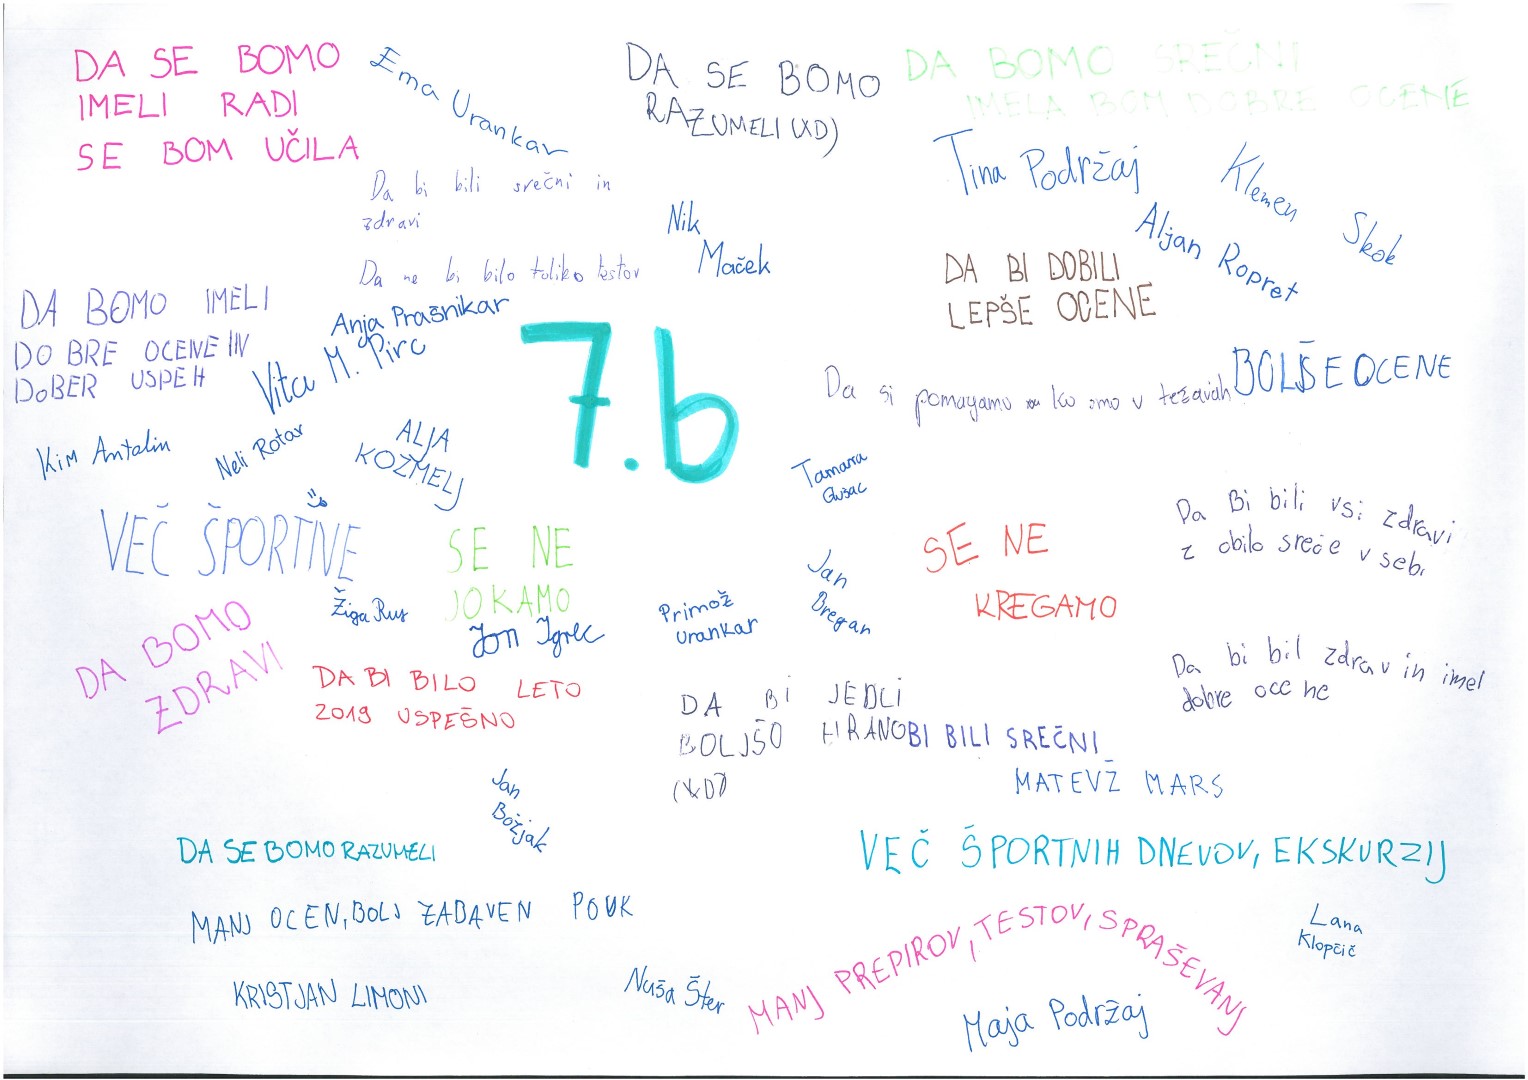 DA SE BOMO
IMELI RADI
SE BOM UČILA
Ema Urankar
DA SE BOMO
RAZUMELI (XD)
DA BOMO SREČNI
IMELA BOM DOBRE OCENE
Tina Podržaj
Klemen Skok
Aljan Ropret
Da bi bili srečni in
zdravi
Nik
Maček
Da ne bi bilo toliko testov
DA BI DOBILI
LEPŠE OCENE
DA BOMO IMELI
DOBRE OCENE IN
DOBER USPEH
Anja Prašnikar
Vita M. Pirc
7.b
Da si pomagamo ko smo v težavah
BOLŠE OCENE
Kim Antolin
Neli Rotar
ALJA
KOZMELJ
Tamara
Gusac
VEČ ŠPORTNE
SE NE
JOKAMO
SE NE
KREGAMO
Da Bi bili vsi zdravi
z obilo sreče v sebi
Žiga Rus
Jon Igrec
Primož
Urankar
Jan
Bregan
DA BOMO
ZDRAVI
DA BI BILO LETO
2019 USPEŠNO
DA BI JEDLI
BOLJŠO HRANO
(XD)
BI BILI SREČNI
MATEVŽ MARS
Da bi bil zdrav in imel
dobre ocene
Jan
Božjak
DA SE BOMO RAZUMELI
VEČ ŠPORTNIH DNEVOV, EKSKURZIJ
MANJ OCEN, BOLJ ZABAVEN POUK
KRISTJAN LIMONI
Nuša Šter
MANJ PREPIROV, TESTOV, SPRAŠEVANJ
Maja Podržaj
Lana
Klopčič